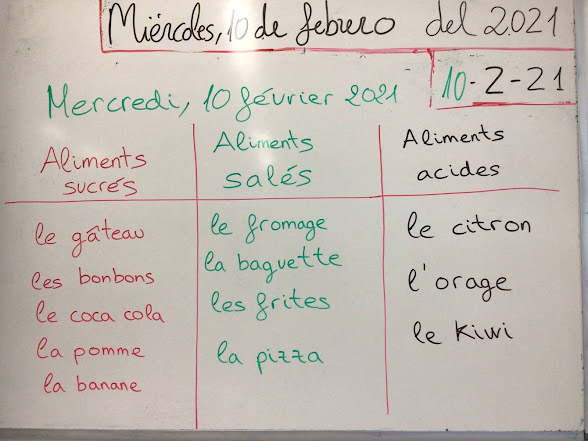 Miércoles, 10 de febrero del 2021
10-2-21
Mercredi, 10 février 2021
Aliments sucrés
le gâteau
les bonbons
le coca cola
la pomme
la banane
Aliments salés
le fromage
la baguette
les frites
la pizza
Aliments acides
le citron
l'orage
le kiwi